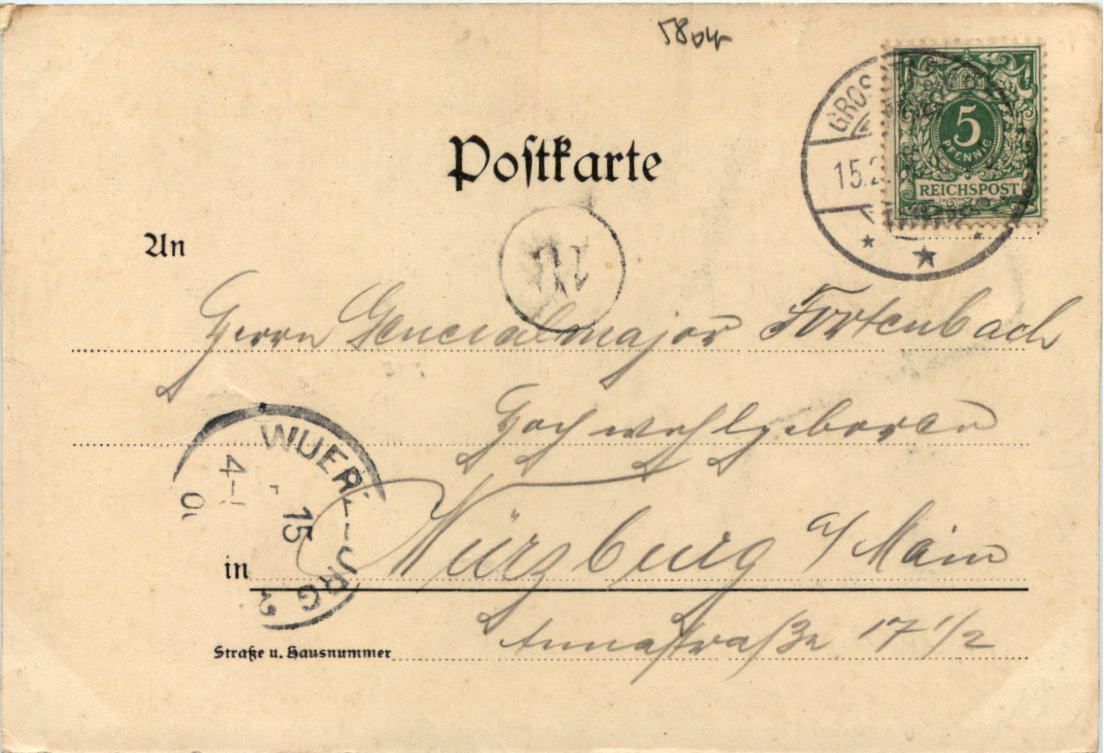 Postkarte
5
PFENNIG
REICHSPOST
GROS
15.2
An
Herrn Generalmajor Fortenbach
Hochwohlgeboren
WUERZBURG
4-
15
2
in Würzburg a/Main
Straße u. Hausnummer Annastraße 17 1/2